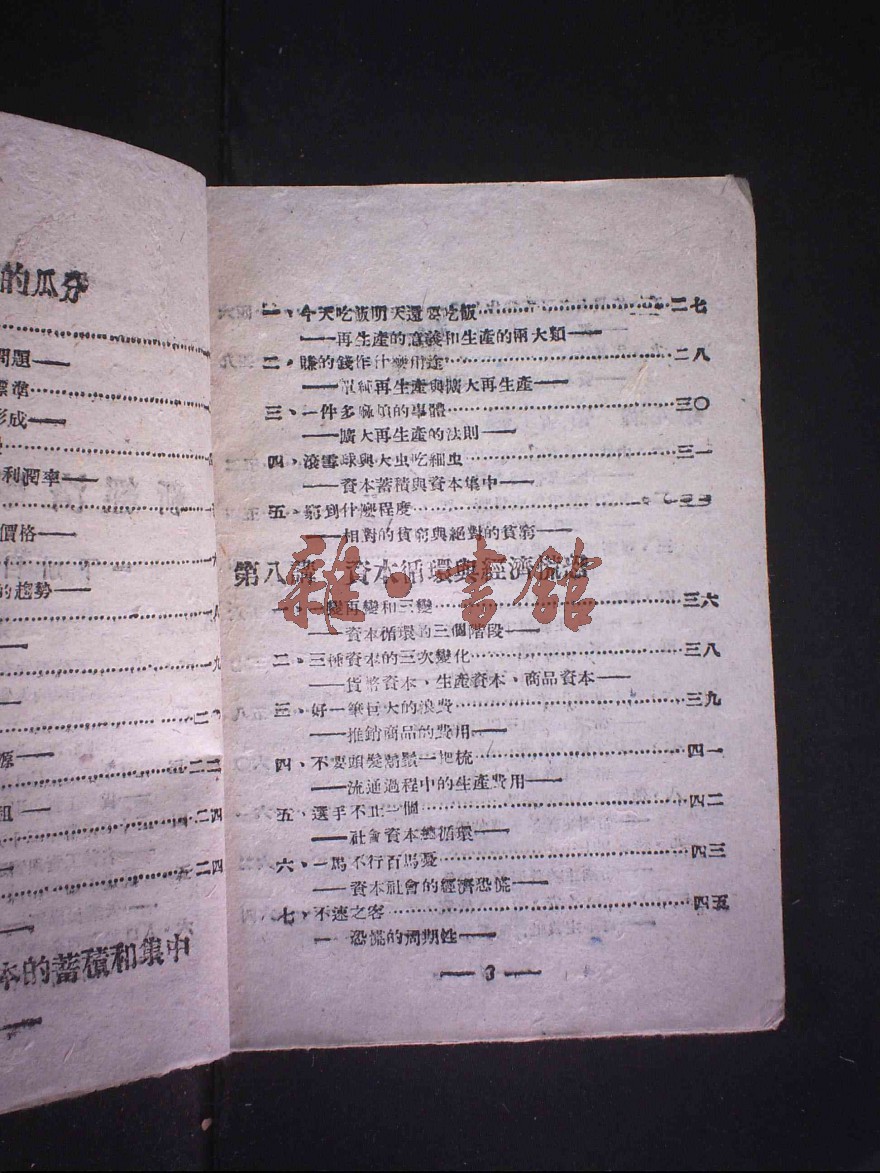 的瓜分
問題——
標準
形成——
利潤率——
價格——
的趨勢——
一八
一九
二〇
源——
二二
租——
二四
二四
本的蓄積和集中
一、今天吃飯明天還要吃飯……二七
——再生產的意義和生產的兩大類——
二、賺的錢作什麼用途……二八
——單純再生產與擴大再生產——
三、一件多麻煩的事體……三〇
——擴大再生產的法則——
四、滾雪球與大虫吃細虫……三一
——資本蓄積與資本集中——
五、窮到什麼程度……三三
——相對的貧窮與絕對的貧窮——
第八講 資本循環與經濟恐慌
一、一變再變和三變……三六
——資本循環的三個階段——
二、三種資本的三次變化……三八
——貨幣資本、生產資本、商品資本——
三、好一筆巨大的浪費……三九
——推銷商品的費用——
四、不要頭髮鬍鬚一把梳……四一
——流通過程中的生產費用——
五、選手不止一個……四二
——社會資本總循環——
六、一馬不行百馬憂……四三
——資本社會的經濟恐慌——
七、不速之客……四五
—恐慌的周期性——
——3——
雜·書館